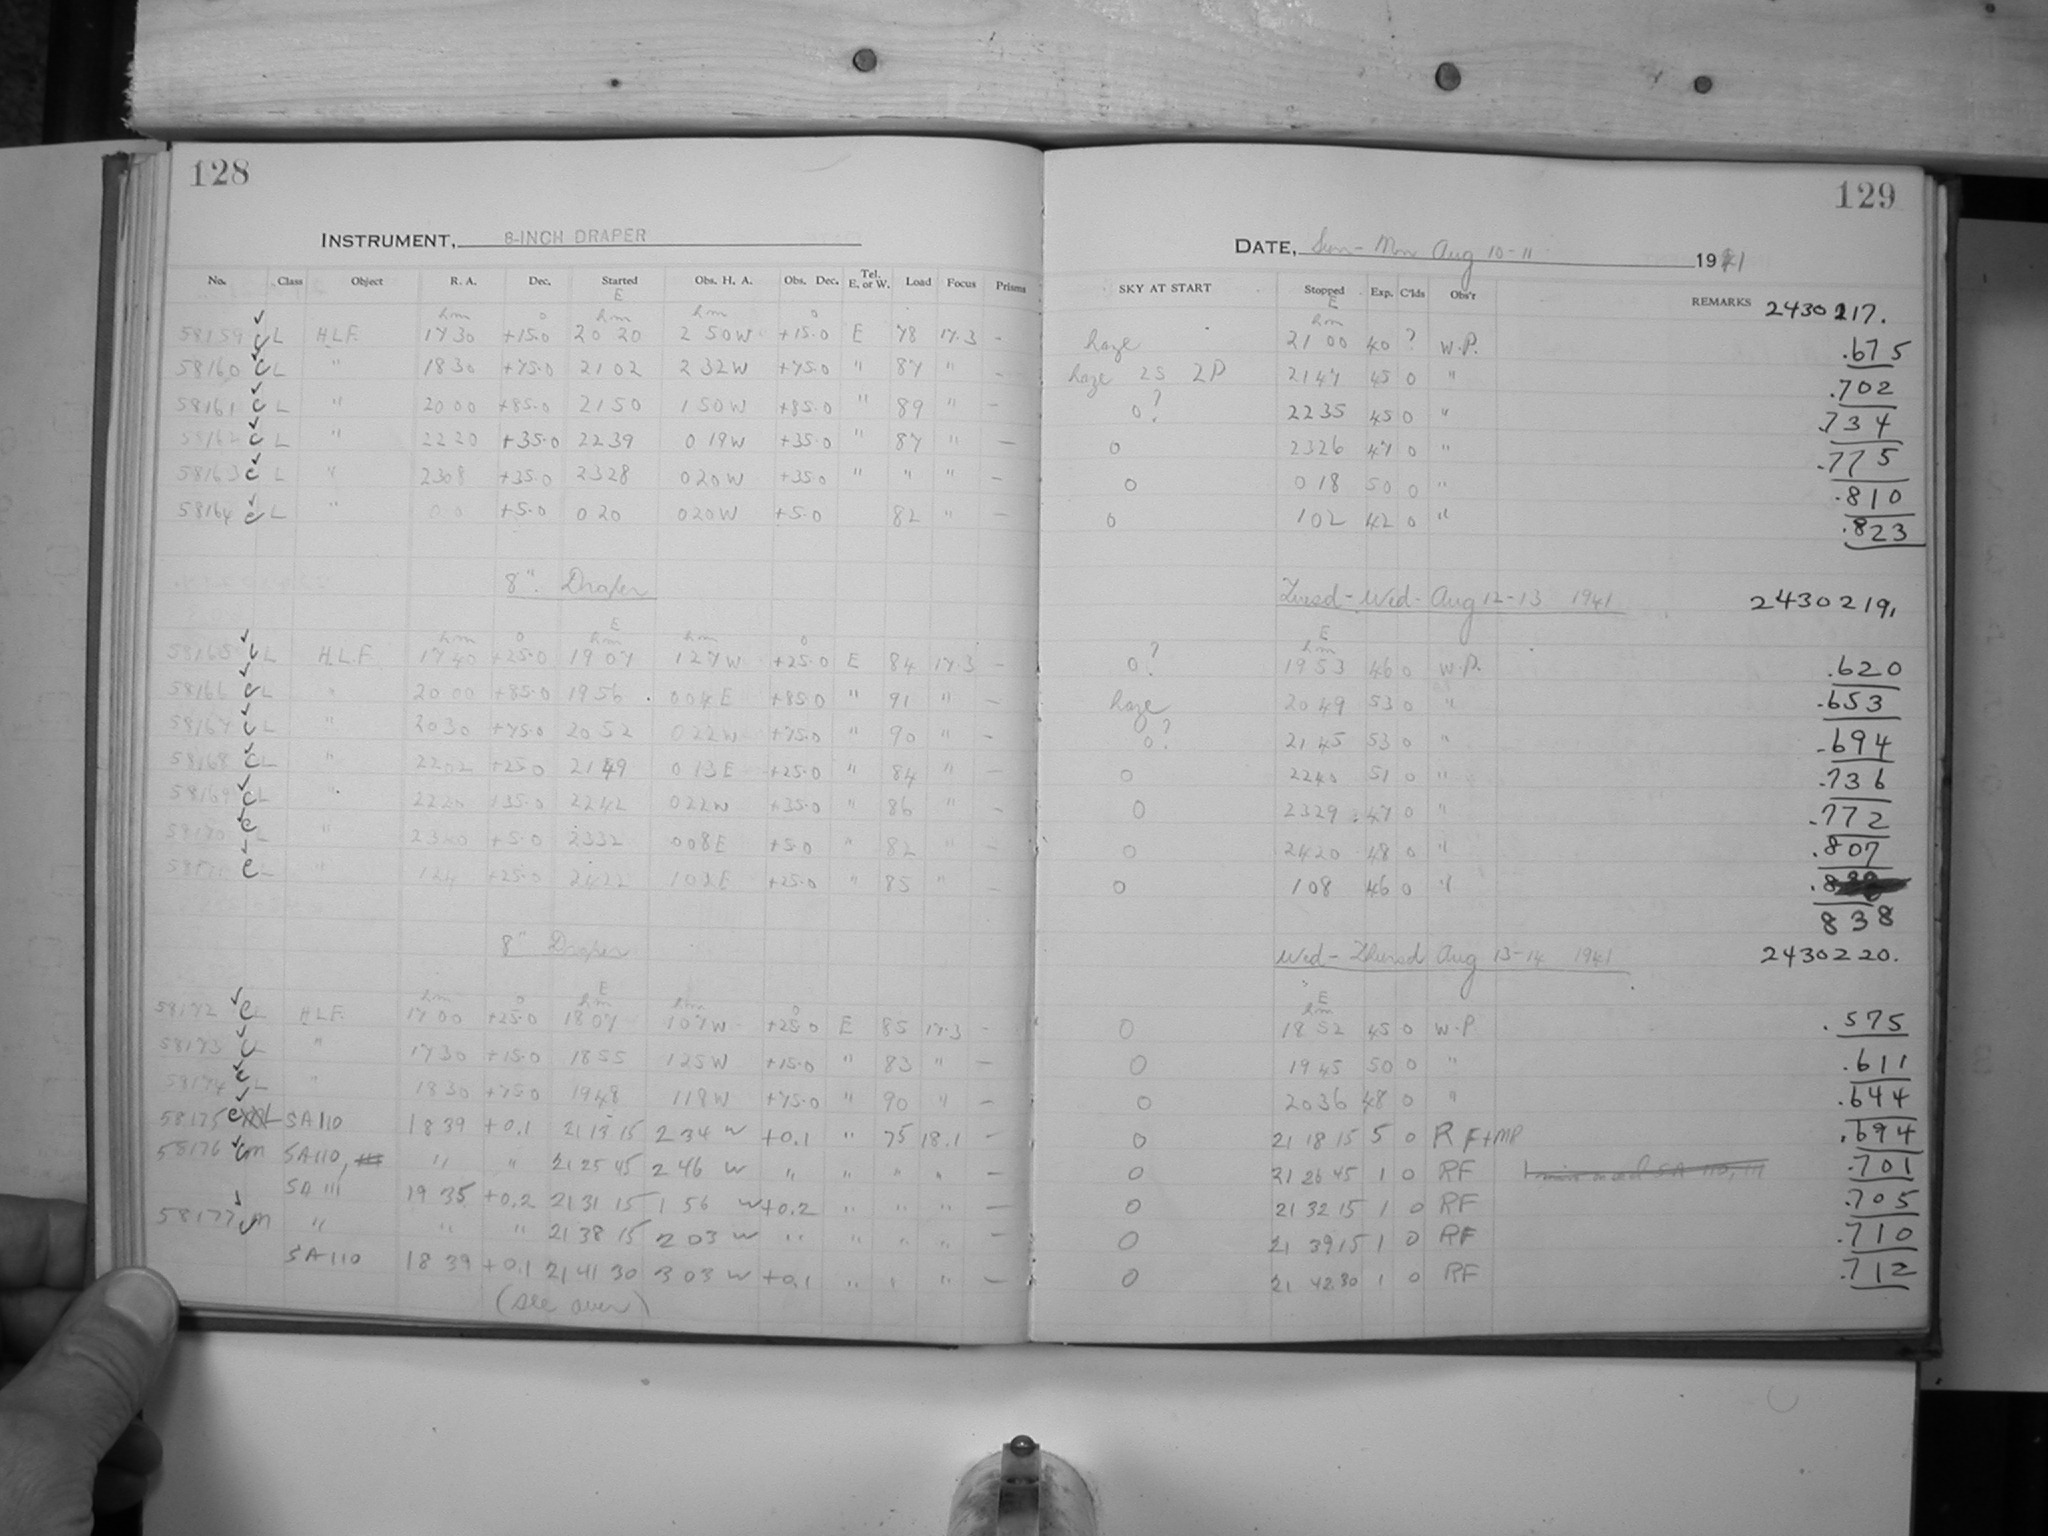 128
INSTRUMENT, 8-INCH DRAPER
No. Class Object R. A. Dec. Started Obs. H. A. Obs. Dec. Tel. E. or W. Load Focus Prisms
E
h m o h m h m o
58159 c L H.L.F. 17 30 +15.0 20 20 2 50 W +15.0 E 78 17.3 -
58160 c L " 18 30 +75.0 21 02 2 32 W +75.0 " 87 " -
58161 c L " 20 00 +85.0 21 50 1 50 W +85.0 " 89 " -
58162 c L " 22 20 +35.0 22 39 0 19 W +35.0 " 87 " -
58163 c L " 23 08 +35.0 23 28 0 20 W +35.0 " " " -
58164 c L " 0 0 +5.0 0 20 0 20 W +5.0 82 " -
8" Draper
E
h m o h m h m o
58165 c L H.L.F. 17 40 +25.0 19 07 1 27 W +25.0 E 84 17.3 -
58166 c L " 20 00 +85.0 19 56 0 04 E +85.0 " 91 " -
58167 c L " 20 30 +75.0 20 52 0 22 W +75.0 " 90 " -
58168 c L " 22 02 +25.0 21 49 0 13 E +25.0 " 84 " -
58169 c L " 22 20 +35.0 22 42 0 22 W +35.0 " 86 " -
58170 c L " 23 40 +5.0 23 32 0 08 E +5.0 " 82 " -
58171 c L " 1 24 +25.0 24 22 1 02 E +25.0 " 85 " -
8" Draper
E
h m o h m h m o
58172 c L H.L.F. 17 00 +25.0 18 07 1 07 W +25.0 E 85 17.3 -
58173 c L " 17 30 +15.0 18 55 1 25 W +15.0 " 83 " -
58174 c L " 18 30 +75.0 19 48 1 18 W +75.0 " 90 " -
58175 c L SA110 18 39 +0.1 21 13 15 2 34 W +0.1 " 75 18.1 -
58176 c m SA110, " " 21 25 45 2 46 W " " " " -
SA 111 19 35 +0.2 21 31 15 1 56 W +0.2 " " " -
58177 c m " " " 21 38 15 2 03 W " " " " -
SA110 18 39 +0.1 21 41 30 3 03 W +0.1 " " " -
(see over)
129
DATE, Sun - Mon Aug 10-11 1941
SKY AT START Stopped Exp. C'lds Obs'r REMARKS 2430217.
E
h m
haze 21 00 40 ? W.P. .675
haze 2S 2P 21 47 45 0 " .702
0? 22 35 45 0 " .734
0 23 26 47 0 " .775
0 0 18 50 0 " .810
0 1 02 42 0 " .823
Tuesd - Wed - Aug 12-13 1941 2430219.
E
h m
0? 19 53 46 0 W.P. .620
haze 20 49 53 0 " .653
0? 21 45 53 0 " .694
0 22 40 51 0 " .736
0 23 29 47 0 " .772
0 24 20 48 0 " .807
0 1 08 46 0 "
838
Wed - Thursd Aug 13-14 1941 2430220.
E
h m
0 18 52 45 0 W.P. .575
0 19 45 50 0 " .611
0 20 36 48 0 " .644
0 21 18 15 5 0 RF+MP .694
0 21 26 45 1 0 RF .701
0 21 32 15 1 0 RF .705
0 21 39 15 1 0 RF .710
0 21 42 30 1 0 RF .712